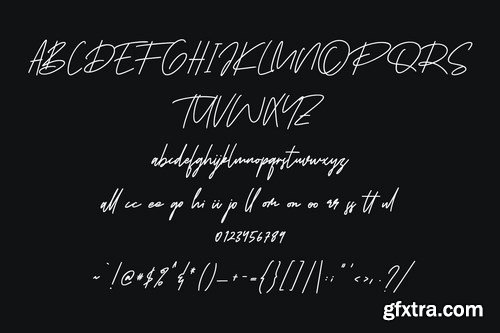 ABCDEFGHIJKLMNOPQRS
TUVWXYZ
abcdefghijklmnopqrstuvwxyz
all cc ee go hi ii jo ll om on oo rr ss tt ul
0123456789
~`!@#$%^&*()_+-={}[]|\:;"'<>,.?/
gfxtra.com